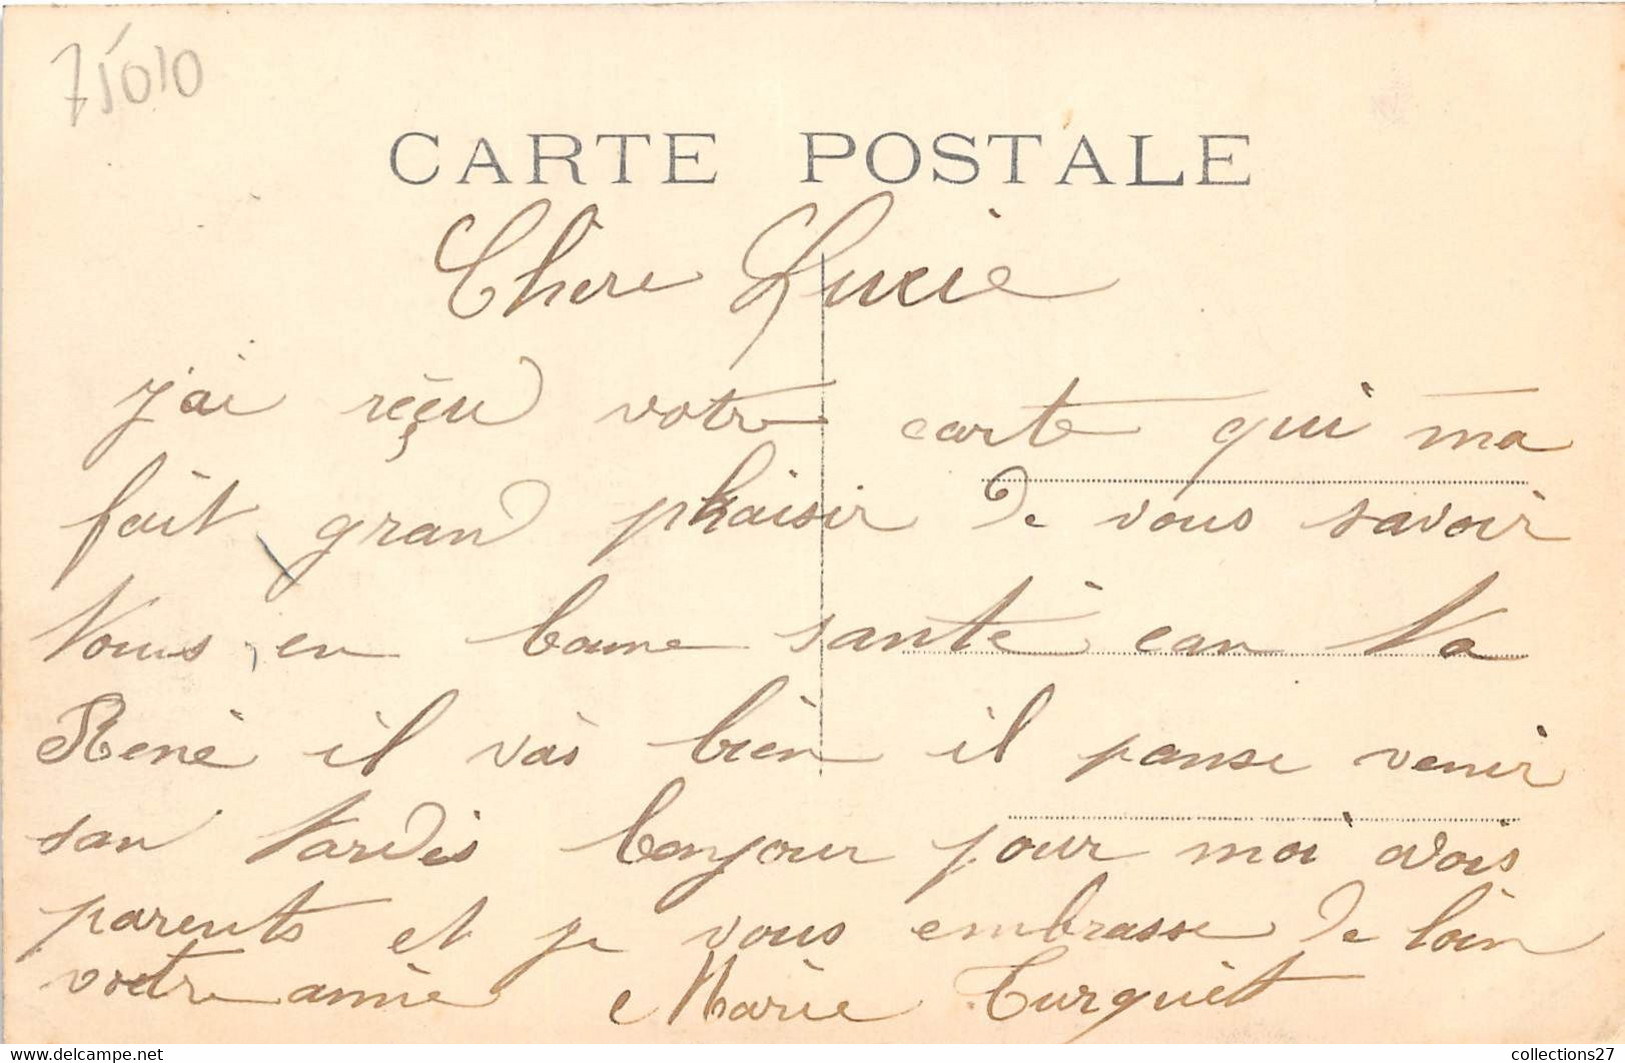 75010
CARTE POSTALE
Chere Lucie
j'ai réçu votre carte qui ma
fait grand plaisir de vous savoir
Vous en bonne santé can Va
René il vas bien il panse venir
san tardés bonjour pour moi avois
parents et je vous embrasse de loin
votre amie Marie Turquiet
collections27